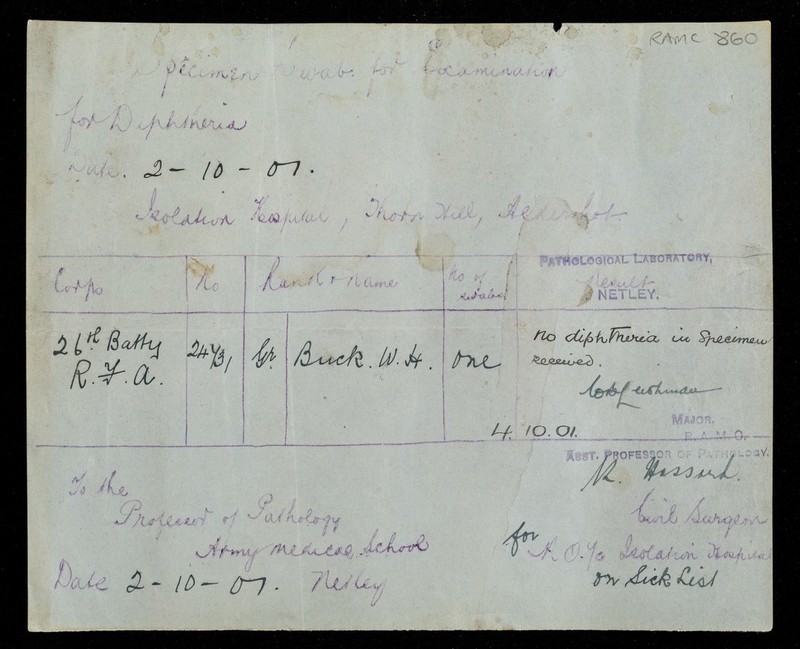 RAMC 860
Specimen Swab for Examination
for Diphtheria
Date. 2-10-01.
Isolation Hospital, Thorn Hill, Aldershot.
Corps No Rank & Name No of swabs Result
PATHOLOGICAL LABORATORY,
NETLEY.
26th Batty R.F.A. Gr. Buck. W.H. one
no diphtheria in specimen
received.
Leishman
4.10.01.
MAJOR.
R.A.M.C.
ASST. PROFESSOR OF PATHOLOGY.
To the
Professor of Pathology
Army Medical School
Netley
Date 2-10-01.
Civil Surgeon
for
O.I/c Isolation Hospital
on Sick List